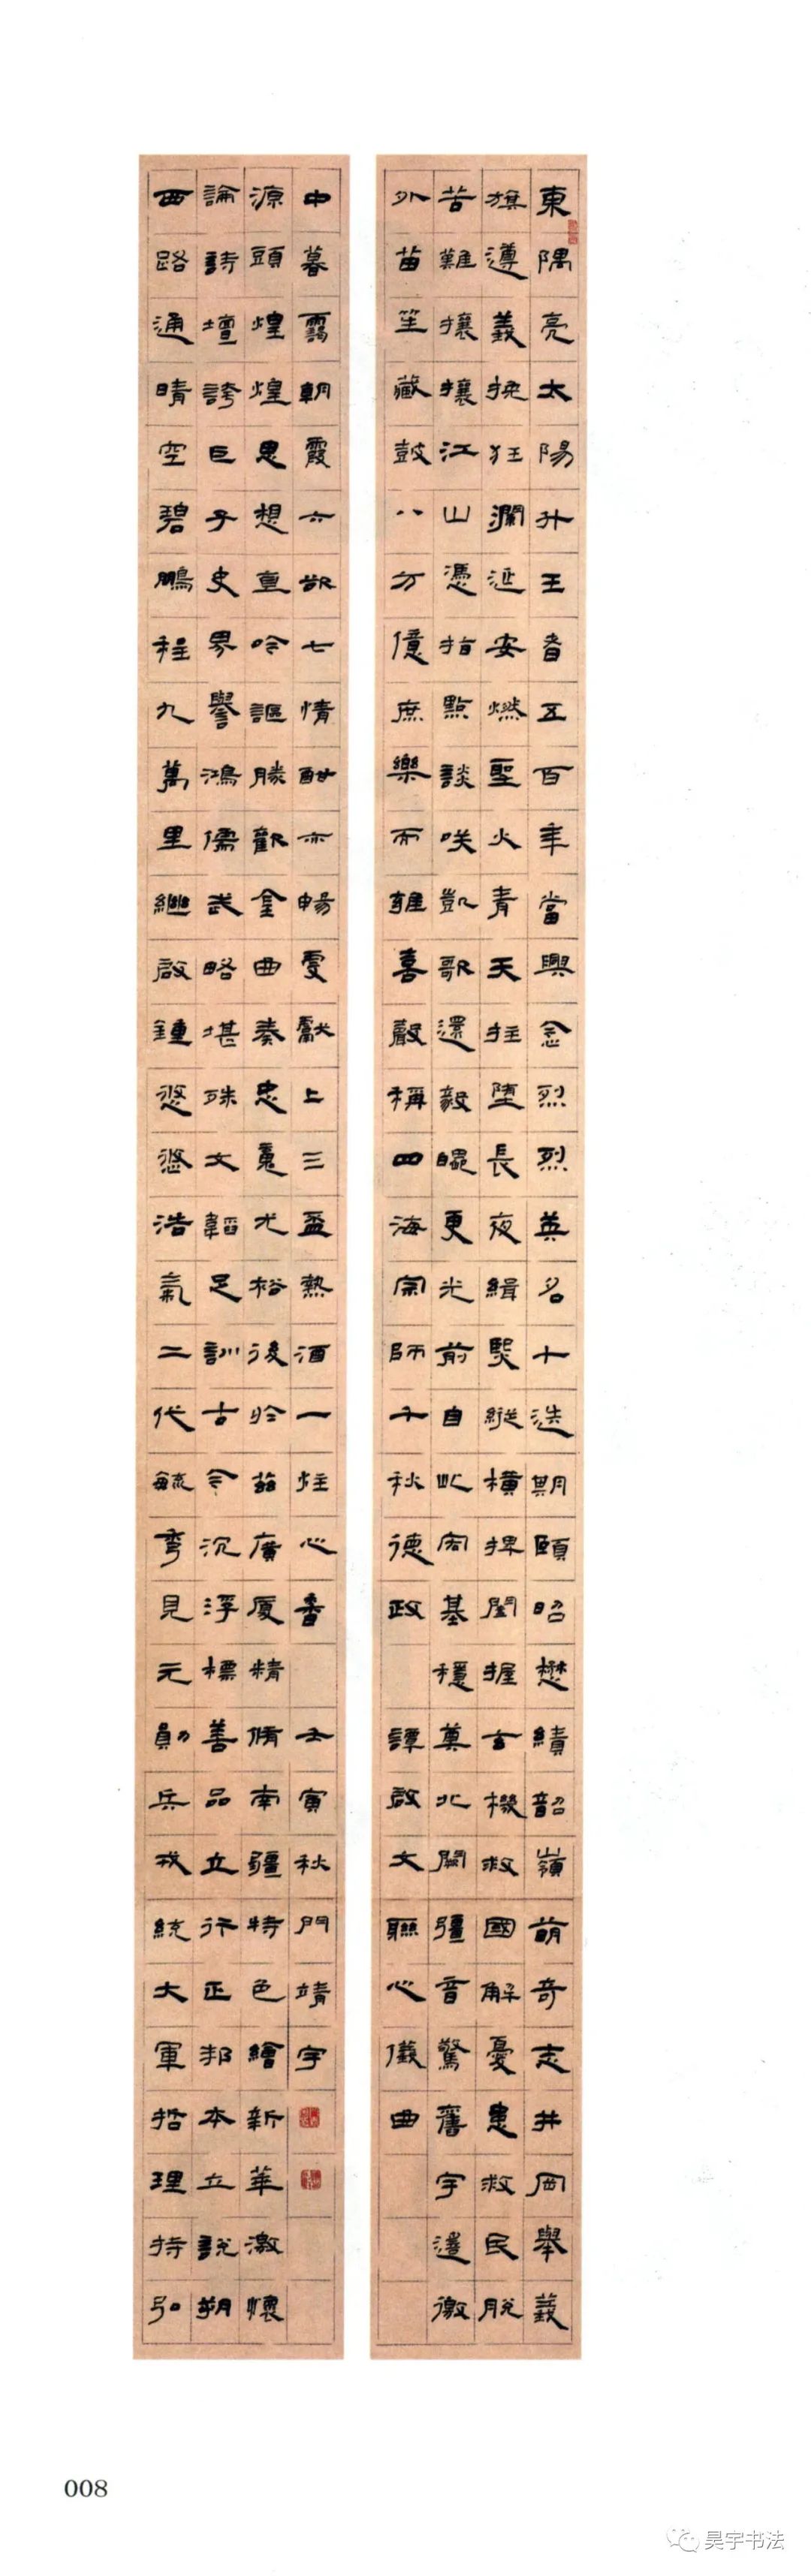 東隅亮太陽升王者五百年當興念烈烈英名十迭期頤昭懋績韶嶺萌奇志井岡舉義
旗遵義挽狂瀾延安燃聖火青天拄墮長夜緝熙縱橫捭闔握玄機救國解憂患救民脫
苦難攘攘江山憑指點談咲凱歌還毅魄更光前自此宏基穩奠北闕彊音驚舊宇邊徼
外苗笙藏鼓八方億庶樂而雍喜聲稱四海宗師千秋德政 譚啟文聯心儀曲
西路通晴空碧鵬程九萬里繼啟鍾悠悠浩氣二代毓彎見元勛兵戎統大軍哲理持弘
論詩壇誇巨子史界譽鴻儒武略堪殊文韜足訓古今沉浮標善品立行正邦本立說朔
源頭煌煌思想直吟謳勝觀金曲奏忠魂尤裕後於茲廣廈精脩南疆特色繪新華激懷
中暮靄朝霞六欲七情酣亦暢虔獻上三盃熱酒一炷心香 壬寅秋門靖宇
008
昊宇书法